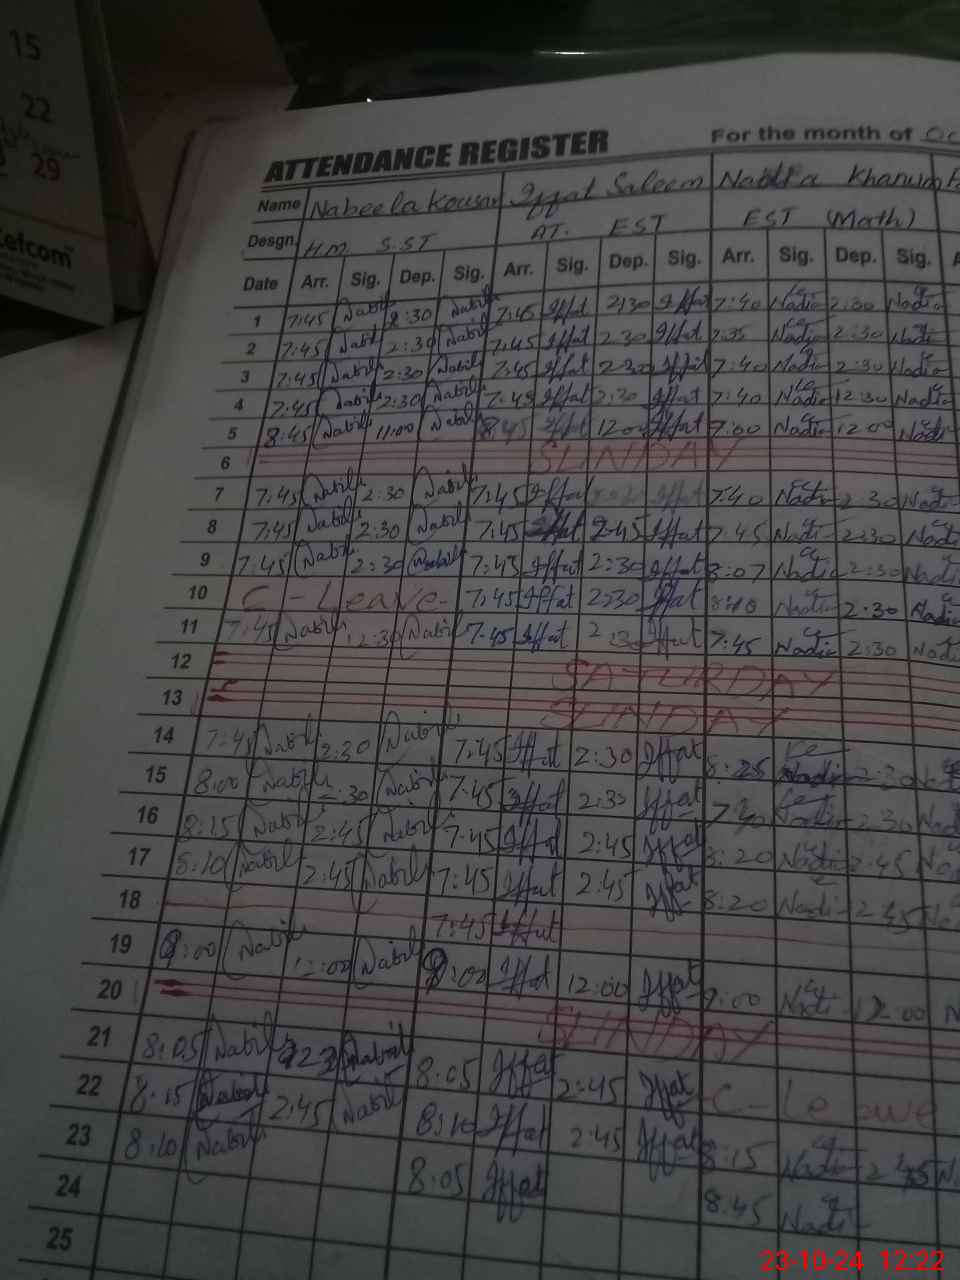 15
22
29
ATTENDANCE REGISTER For the month of Oc
Name Nabeela Kousar Iffat Saleem Nadia Khanum
Desgn. H.M S.ST AT. EST EST (Math)
Date Arr. Sig. Dep. Sig. Arr. Sig. Dep. Sig. Arr. Sig. Dep. Sig.
1 7:45 Nabila 2:30 Nabila 7:45 Iffat 2:30 Iffat 7:40 Nadia 2:30 Nadia
2 7:45 Nabila 2:30 Nabila 7:45 Iffat 2:30 Iffat 7:35 Nadia 2:30 Nadia
3 7:45 Nabila 2:30 Nabila 7:45 Iffat 2:30 Iffat 7:40 Nadia 2:30 Nadia
4 7:45 Nabila 2:30 Nabila 7:45 Iffat 2:30 Iffat 7:40 Nadia 12:30 Nadia
5 8:45 Nabila 11:00 Nabila 8:45 Iffat 12:00 Iffat 7:00 Nadia 12:00 Nadia
6 SUNDAY
7 7:45 Nabila 2:30 Nabila 7:45 Iffat Iffat 7:40 Nadia 2:30 Nadia
8 7:45 Nabila 2:30 Nabila 7:45 Iffat 2:45 Iffat 7:45 Nadia 2:30 Nadia
9 7:45 Nabila 2:30 Nabila 7:45 Iffat 2:30 Iffat 8:07 Nadia 2:30 Nadia
10 C-Leave 7:45 Iffat 2:30 Iffat 8:10 Nadia 2:30 Nadia
11 7:45 Nabila 2:30 Nabila 7:45 Iffat 2:30 Iffat 7:45 Nadia 2:30 Nadia
12 SATURDAY
13 SUNDAY
14 7:45 Nabila 2:30 Nabila 7:45 Iffat 2:30 Iffat 8:25 Nadia 2:30
15 8:00 Nabila 2:30 Nabila 7:45 Iffat 2:30 Iffat Nadia 2:30
16 8:15 Nabila 2:45 Nabila 7:45 Iffat 2:45 Iffat 8:20 Nadia 2:45
17 8:10 Nabila 2:45 Nabila 7:45 Iffat 2:45 Iffat 8:20 Nadia 2:45
18 7:45 Iffat
19 9:00 Nabila 12:00 Nabila 9:00 Iffat 12:00 Iffat 9:00 Nadia 12:00
20 SUNDAY
21 8:05 Nabila Nabila 8:05 Iffat 2:45 Iffat C-Leave
22 8:15 Nabila 2:45 Nabila 8:10 Iffat 2:45 Iffat 8:15 Nadia 2:45
23 8:10 Nabila 8:05 Iffat 8:45 Nadia
24
25
23-10-24 12:22